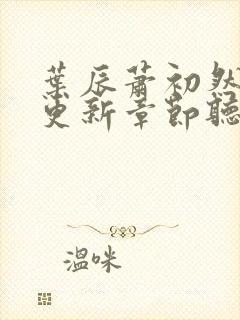 葉辰蕭初然
更新章節聽
溫咪